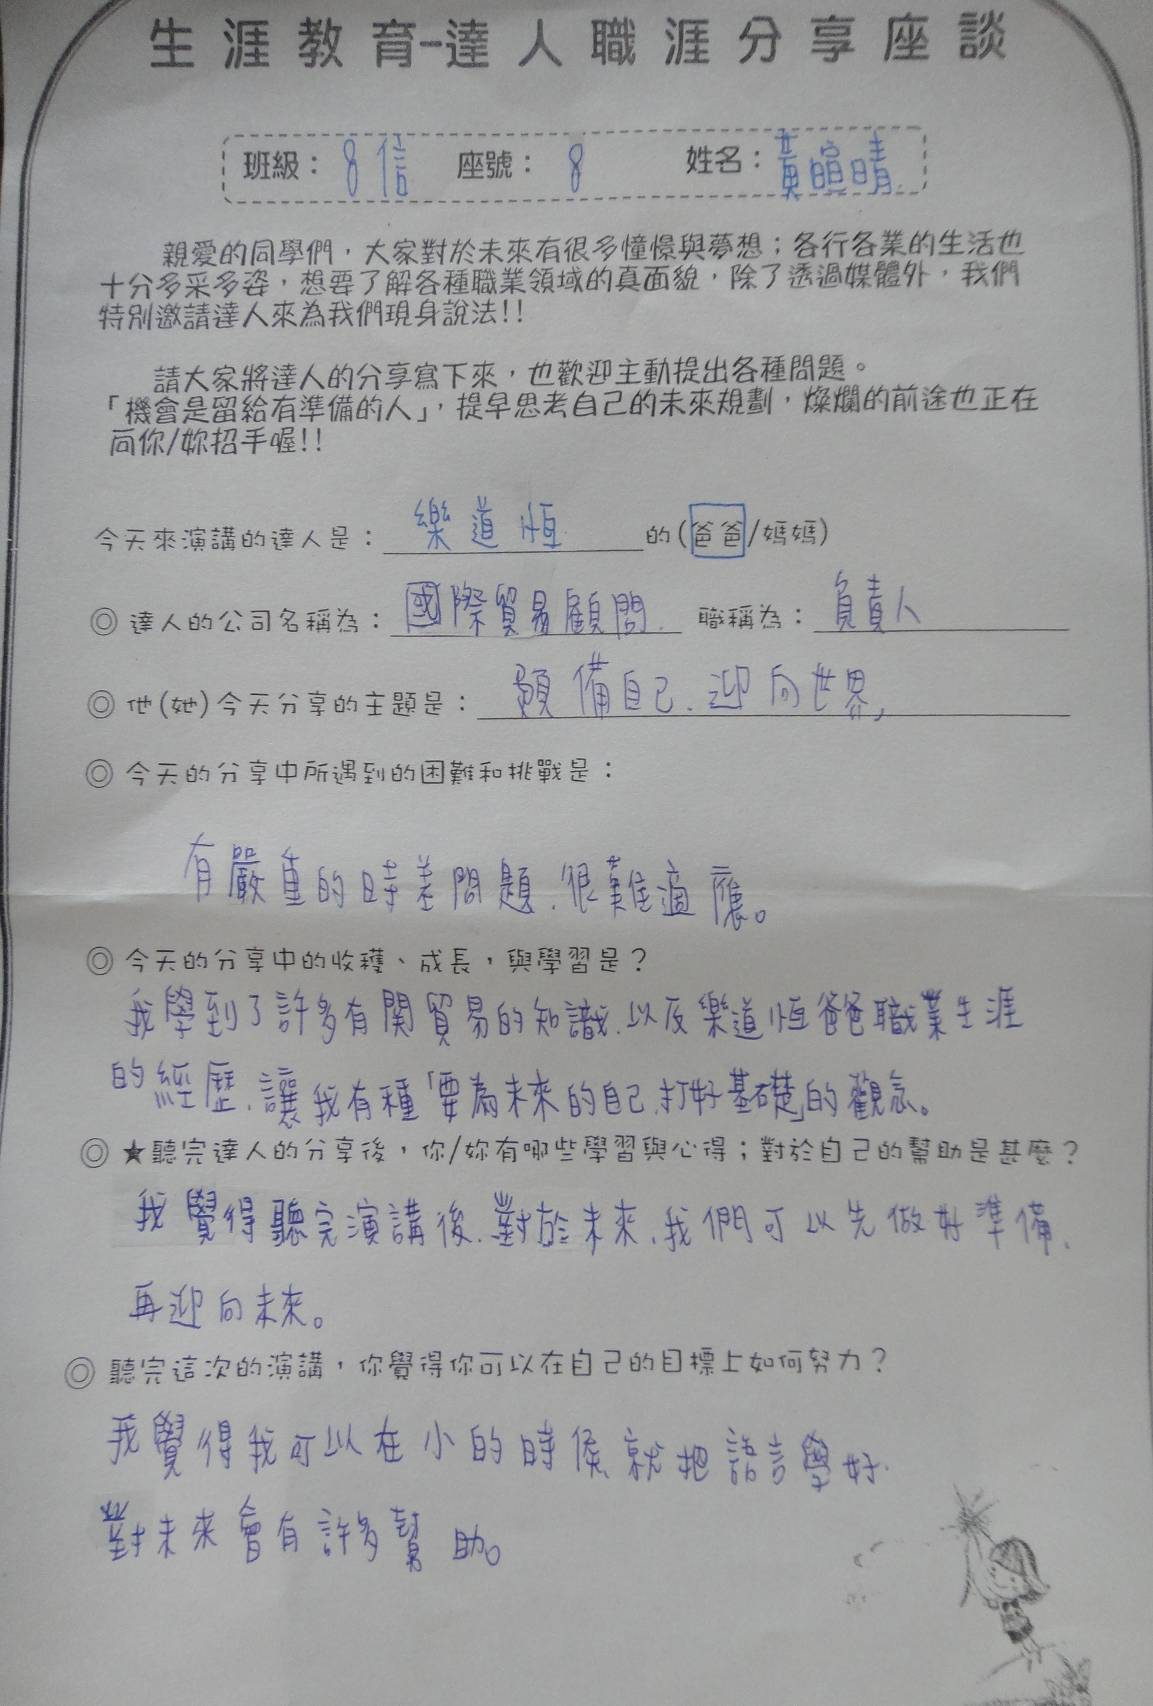 生涯教育-達人職涯分享座談
班級：8信 座號：8 姓名：黃暄晴
親愛的同學們，大家對於未來有很多憧憬與夢想；各行各業的生活也
十分多采多姿，想要了解各種職業領域的真面貌，除了透過媒體外，我們
特別邀請達人來為我們現身說法!!
請大家將達人的分享寫下來，也歡迎主動提出各種問題。
「機會是留給有準備的人」，提早思考自己的未來規劃，燦爛的前途也正在
向你/妳招手喔!!
今天來演講的達人是：樂道恒的(爸爸/媽媽)
◎ 達人的公司名稱為：國際貿易顧問. 職稱為：負責人
◎ 他(她)今天分享的主題是：預備自己.迎向世界,
◎ 今天的分享中所遇到的困難和挑戰是：
有嚴重的時差問題.很難適應。
◎ 今天的分享中的收穫、成長，與學習是？
我學到了許多有関貿易的知識.以及樂道恒爸爸職業生涯
的經歷.讓我有種「要為未來的自己.打好基礎」的觀念。
◎ ★聽完達人的分享後，你/妳有哪些學習與心得；對於自己的幫助是甚麼？
我覺得聽完演講後.對於未來.我們可以先做好準備.
再迎向未來。
◎ 聽完這次的演講，你覺得你可以在自己的目標上如何努力？
我覺得我可以在小的時候就把語言學好.
對未來會有許多幫助。